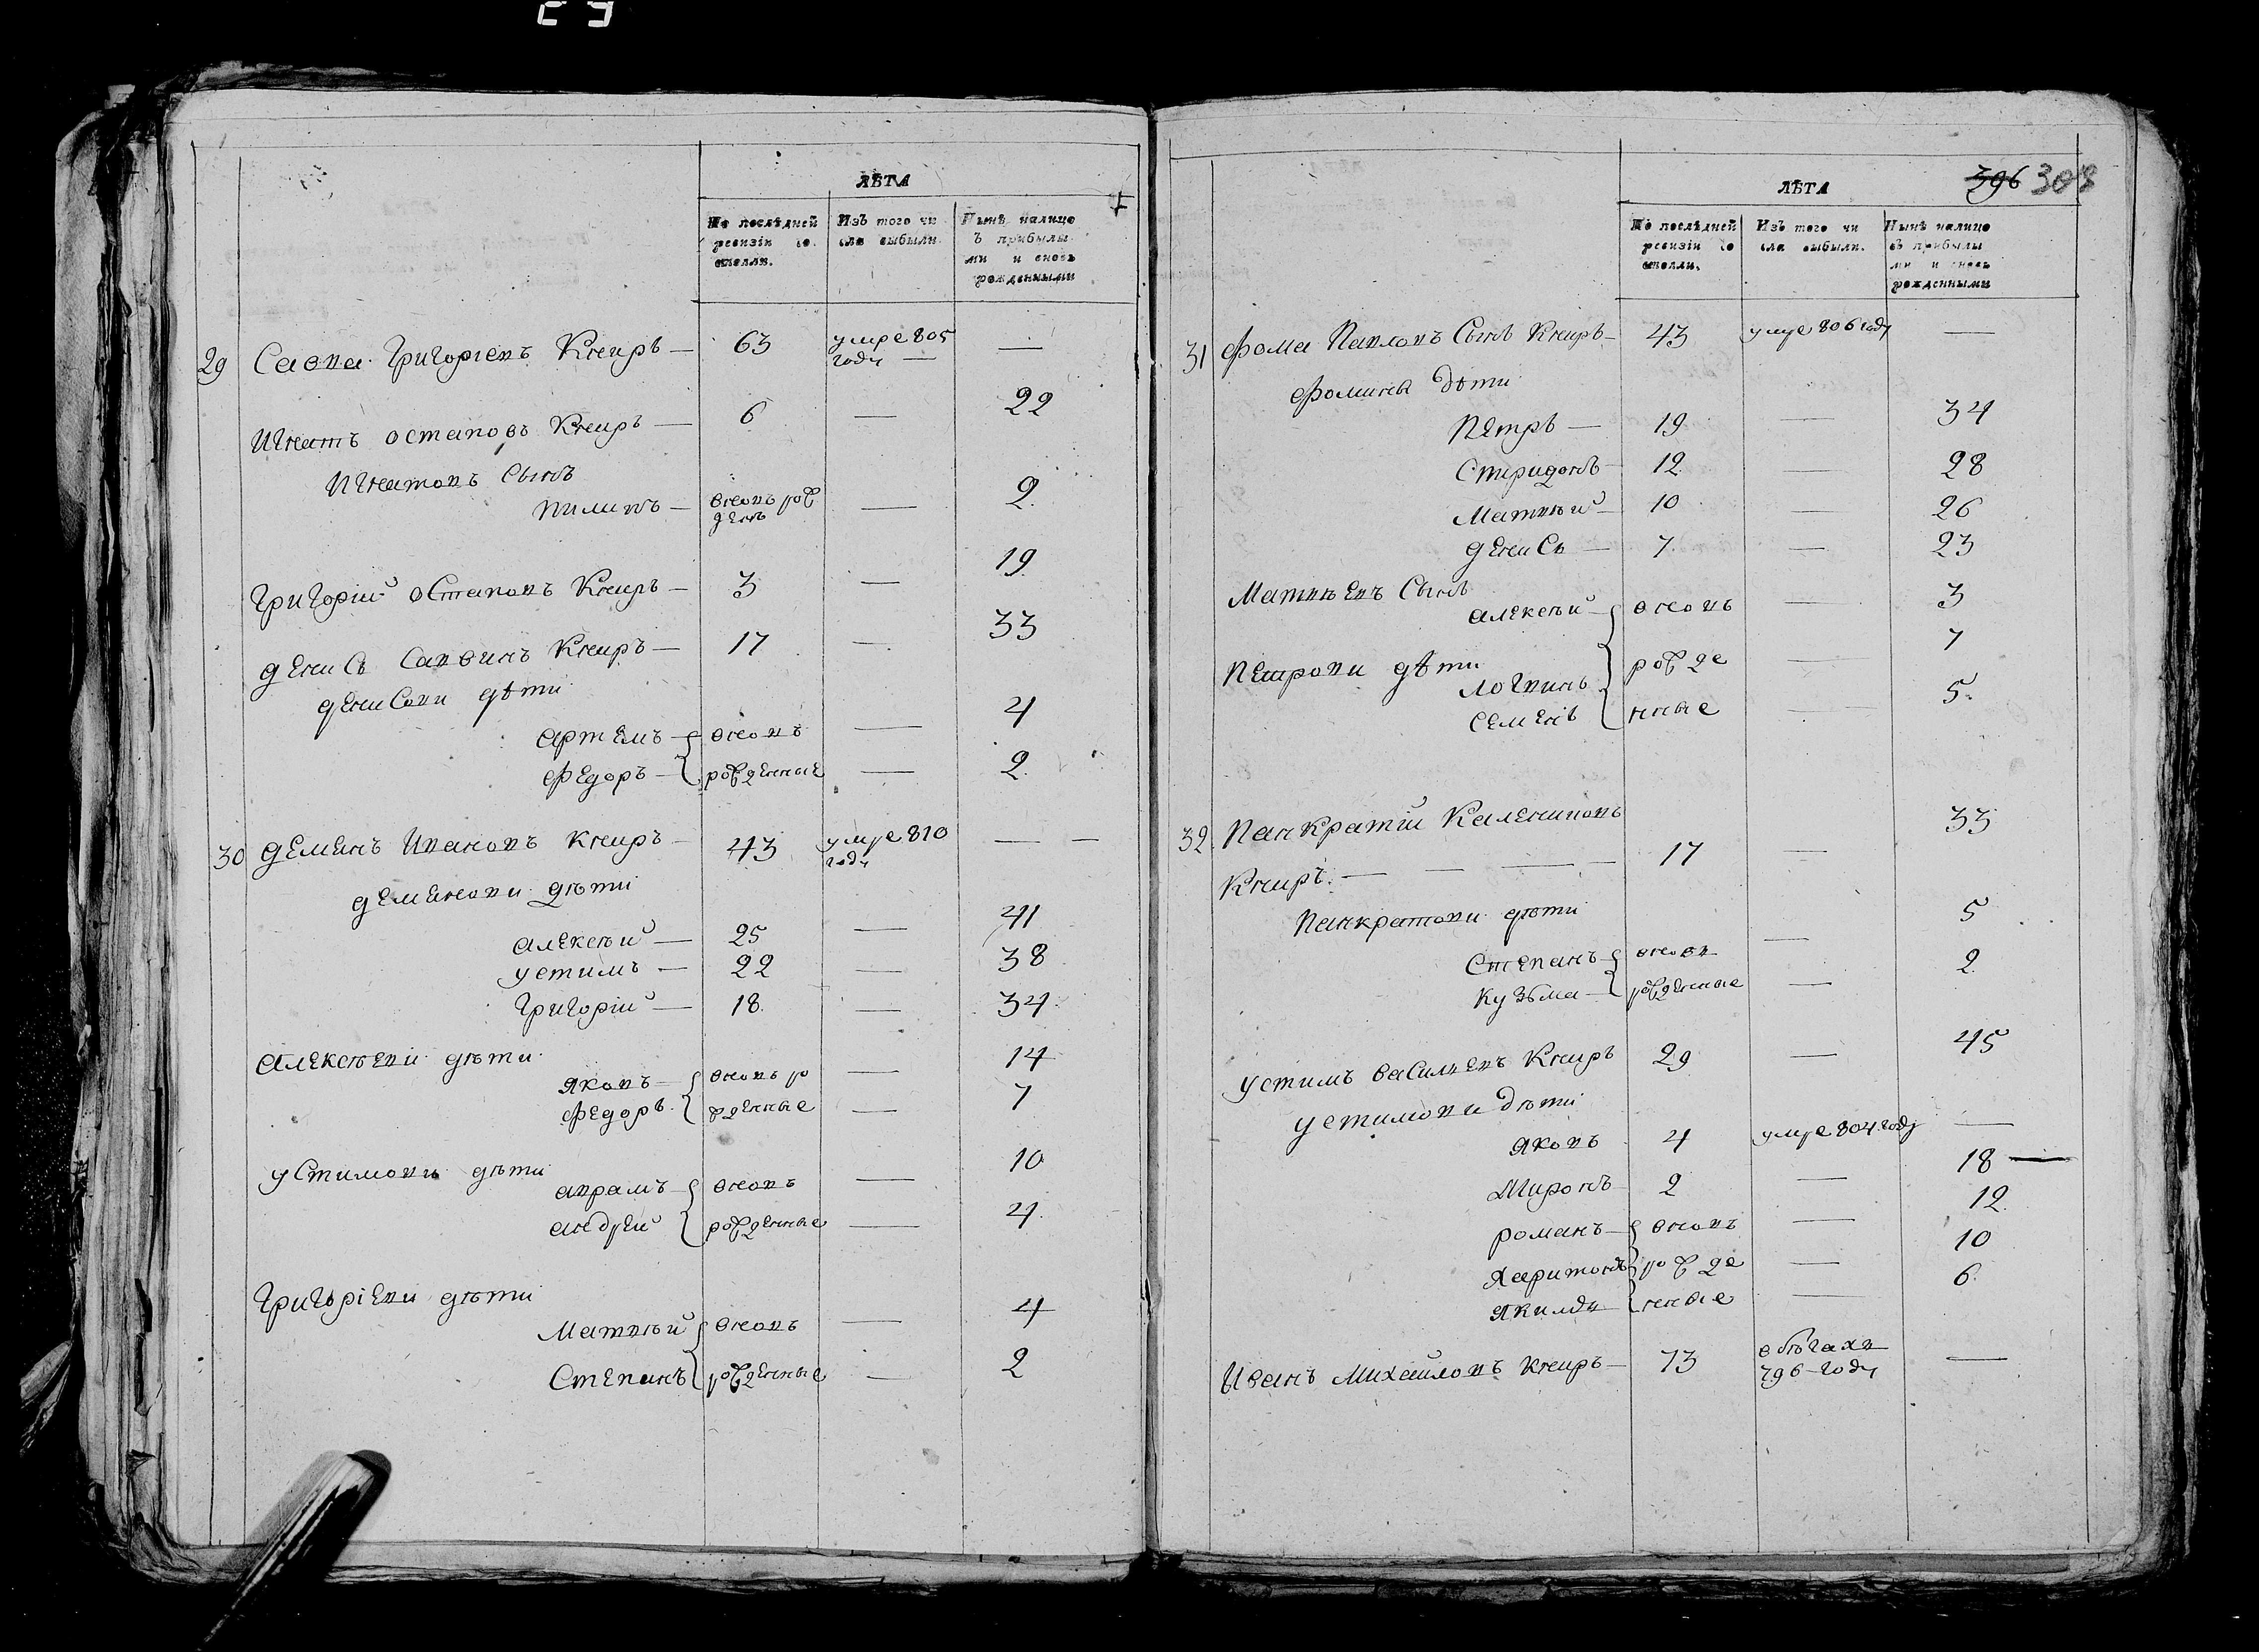 ЛѢТА
По послѣдней
ревизіи со
стояли.
Изъ того чи
сла выбыли.
Нынѣ налицо
съ прибылы
ми и вновь
рожденными
29 Савва Григоріевъ Книръ — 63 умре 805 —
году —
Игнатъ Остаповъ Книръ — 6 — 22
Игнатовъ сынъ
Пилипъ — вновь рож — 2
денъ
Григорій Остаповъ Книръ — 3 — 19
Денисъ Саввинъ Книръ — 17 — 33
Денисови дѣти
Артемъ — вновь — 4
Федоръ — рожденные — 2
30 Деменъ Ивановъ Книръ — 43 умре 810 — —
году
Деменови дѣти
Алексѣй — 25 — 41
Устимъ — 22 — 38
Григорій — 18 — 34
Алексѣеви дѣти
Яковъ — вновь ро — 14
Федоръ жденные — 7
Устимови дѣти
Аврамъ — вновь — 10
Андрей рожденные — 4
Григоріеви дѣти
Матвѣй вновь — 4
Степанъ рожденные — 2
396 303
ЛѢТА
По послѣдней
ревизіи со
стояли.
Изъ того чи
сла выбыли.
Нынѣ налицо
съ прибылы
ми и вновь
рожденными
31 Фома Павловъ сынъ Книръ — 43 умре 806 году —
Фомины дѣти
Петръ — 19 — 34
Спиридонъ — 12 — 28
Матвѣй — 10 — 26
Денисъ — 7 — 23
Матвѣевъ сынъ
Алексѣй — вновь — 3
Петрови дѣти
Логвинъ рожде — 7
Семенъ нные — 5
32 Панкратій Калениковъ 33
Книръ — — — — 17 —
Панкратови дѣти
Степанъ — вновь — 5
Кузьма — рожденные — 2
Устимъ Васильевъ Книръ 29 — 45
Устимови дѣти
Яковъ 4 умре 804 году —
Миронъ 2 — 18 —
Романъ — вновь — 12
Харитонъ рожде — 10
Якимъ нные — 6
Иванъ Михайловъ Книръ — 73 в бѣгахъ —
796 году